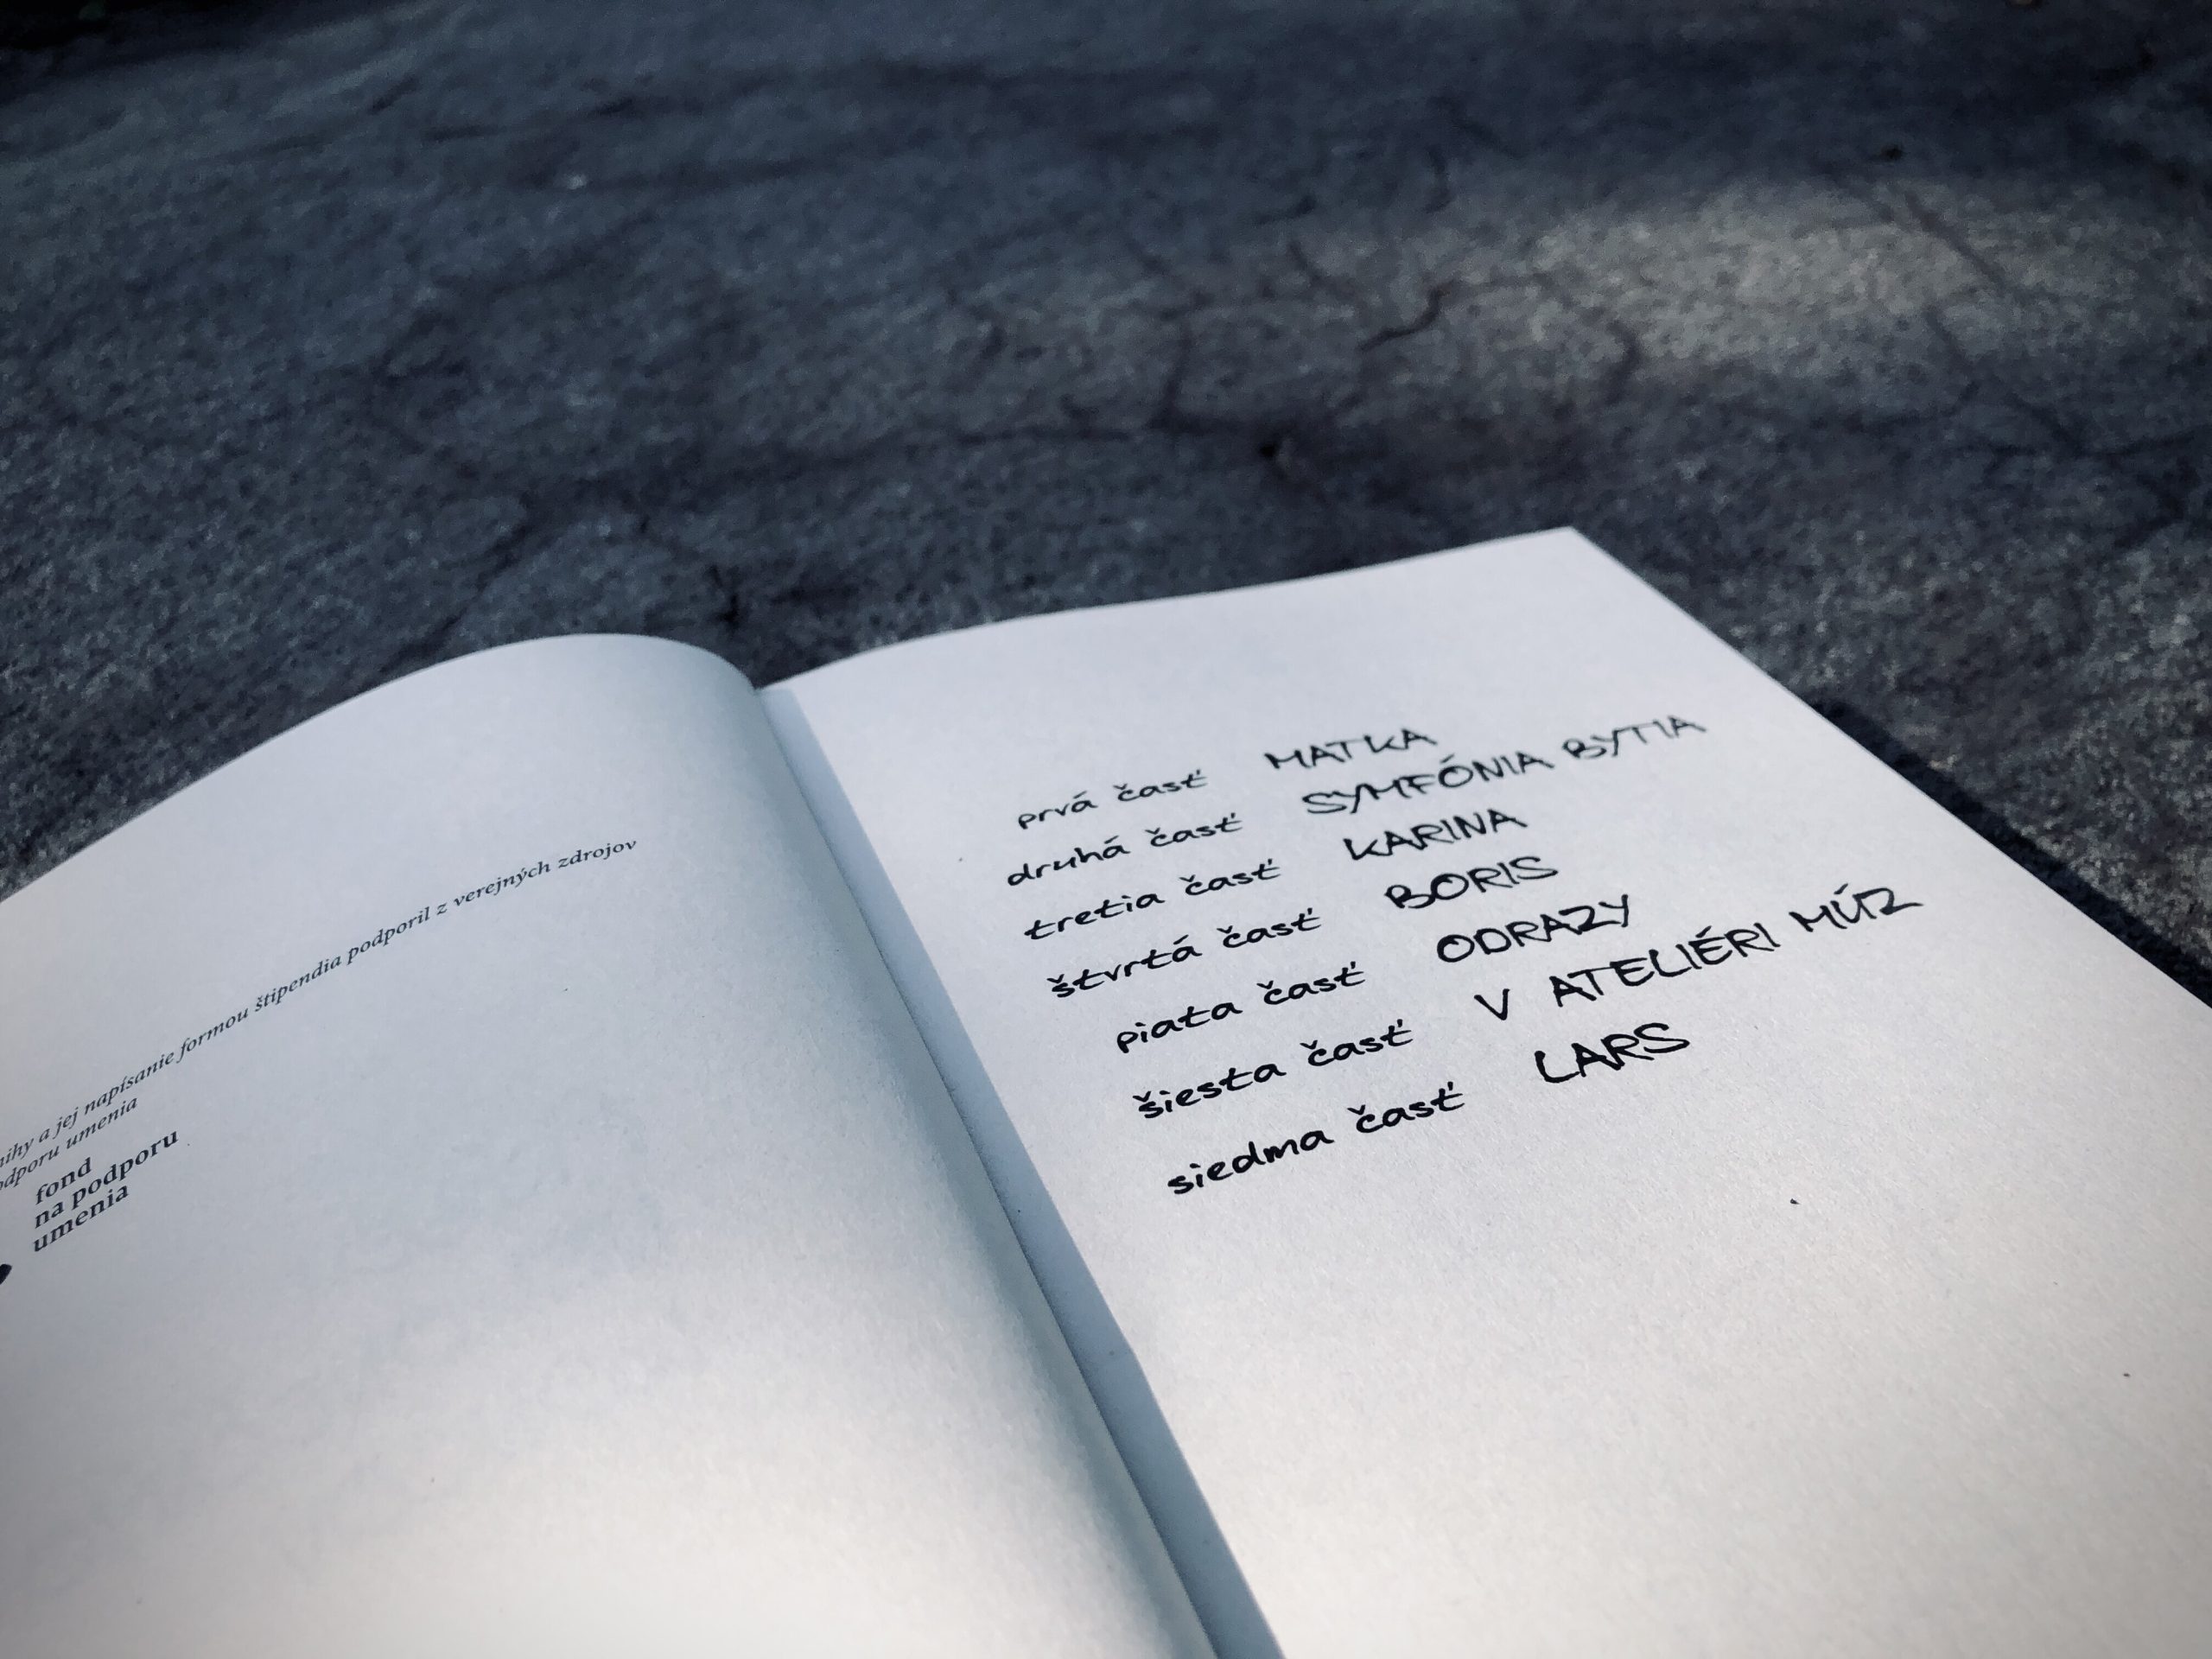 a jej napísanie formou štipendia podporil z verejných zdrojov
umenia
fond
na podporu
umenia
prvá časť MATKA
druhá časť SYMFÓNIA BYTIA
tretia časť KARINA
štvrtá časť BORIS
piata časť ODRAZY
šiesta časť V ATELIÉRI MÚZ
siedma časť LARS